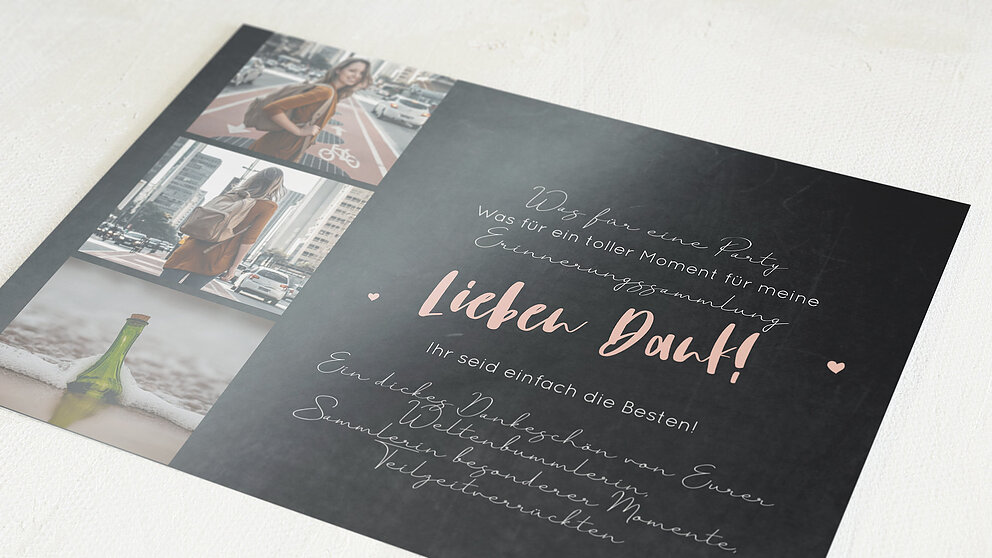 Was für eine Party
Was für ein toller Moment für meine
Erinnerungssammlung
Lieben Dank!
Ihr seid einfach die Besten!
Ein dickes Dankeschön von Eurer
Weltenbummlerin,
Sammlerin besonderer Momente,
Teilzeitverrückten